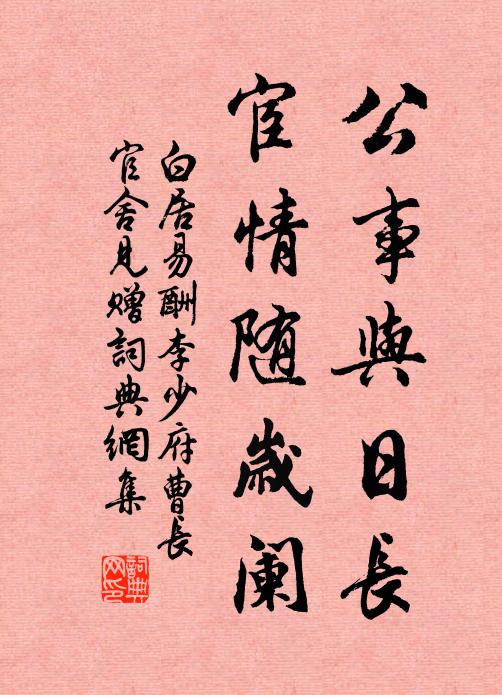 公事與日長
宦情随歲闌
白居易酬李少府曹長
官舍見贈詞典網集
詞典
网印